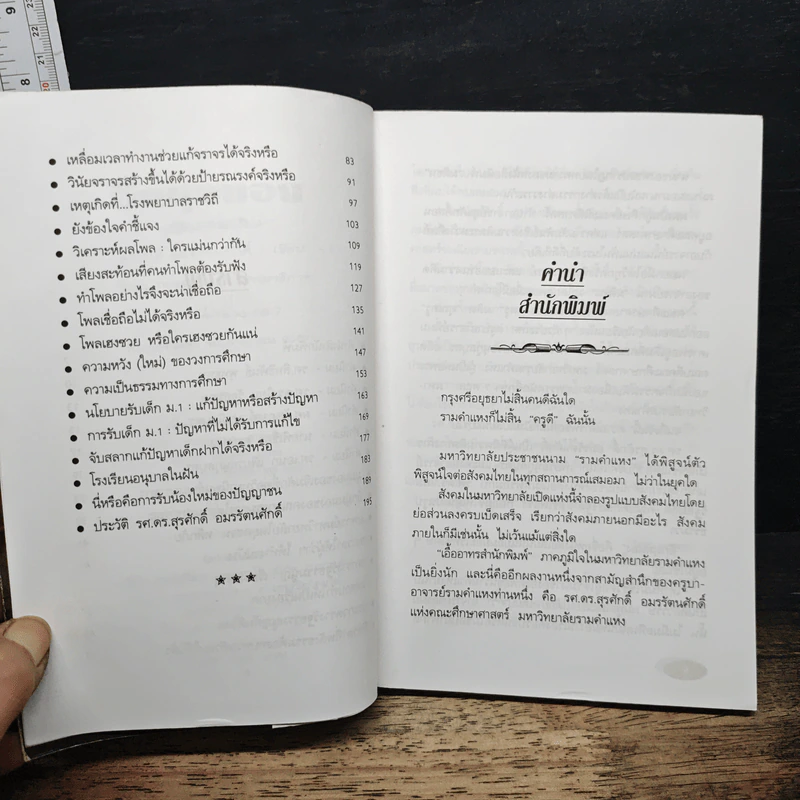 9
8
23
22
21
20
เหลื่อมเวลาทำงานช่วยแก้จราจรได้จริงหรือ 83
วินัยจราจรสร้างขึ้นได้ด้วยป้ายรณรงค์จริงหรือ 91
เหตุเกิดที่...โรงพยาบาลราชวิถี 97
ยังข้องใจคำชี้แจง 103
วิเคราะห์ผลโพล : ใครแม่นกว่ากัน 109
เสียงสะท้อนที่คนทำโพลต้องรับฟัง 119
ทำโพลอย่างไรจึงจะน่าเชื่อถือ 127
โพลเชื่อถือไม่ได้จริงหรือ 135
โพลเฮงซวย หรือใครเฮงซวยกันแน่ 141
ความหวัง (ใหม่) ของวงการศึกษา 147
ความเป็นธรรมทางการศึกษา 153
นโยบายรับเด็ก ม.1 : แก้ปัญหาหรือสร้างปัญหา 163
การรับเด็ก ม.1 : ปัญหาที่ไม่ได้รับการแก้ไข 169
จับสลากแก้ปัญหาเด็กฝากได้จริงหรือ 177
โรงเรียนอนุบาลในฝัน 183
นี่หรือคือการรับน้องใหม่ของปัญญาชน 189
ประวัติ รศ.ดร.สุรศักดิ์ อมรรัตนศักดิ์ 195
คำนำ
สำนักพิมพ์
กรุงศรีอยุธยาไม่สิ้นคนดีฉันใด
รามคำแหงก็ไม่สิ้น "ครูดี" ฉันนั้น
มหาวิทยาลัยประชาชนนาม "รามคำแหง" ได้พิสูจน์ตัว
พิสูจน์ใจต่อสังคมไทยในทุกสถานการณ์เสมอมา ไม่ว่าในยุคใด
สังคมในมหาวิทยาลัยเปิดแห่งนี้จำลองรูปแบบสังคมไทยโดย
ย่อส่วนลงครบเบ็ดเสร็จ เรียกว่าสังคมภายนอกมีอะไร สังคม
ภายในก็มีเช่นนั้น ไม่เว้นแม้แต่สิ่งใด
"เอื้ออาทรสำนักพิมพ์" ภาคภูมิใจในมหาวิทยาลัยรามคำแหง
เป็นยิ่งนัก และนี่คืออีกผลงานหนึ่งจากสามัญสำนึกของครูบา-
อาจารย์รามคำแหงท่านหนึ่ง คือ รศ.ดร.สุรศักดิ์ อมรรัตนศักดิ์
แห่งคณะศึกษาศาสตร์ มหาวิทยาลัยรามคำแหง